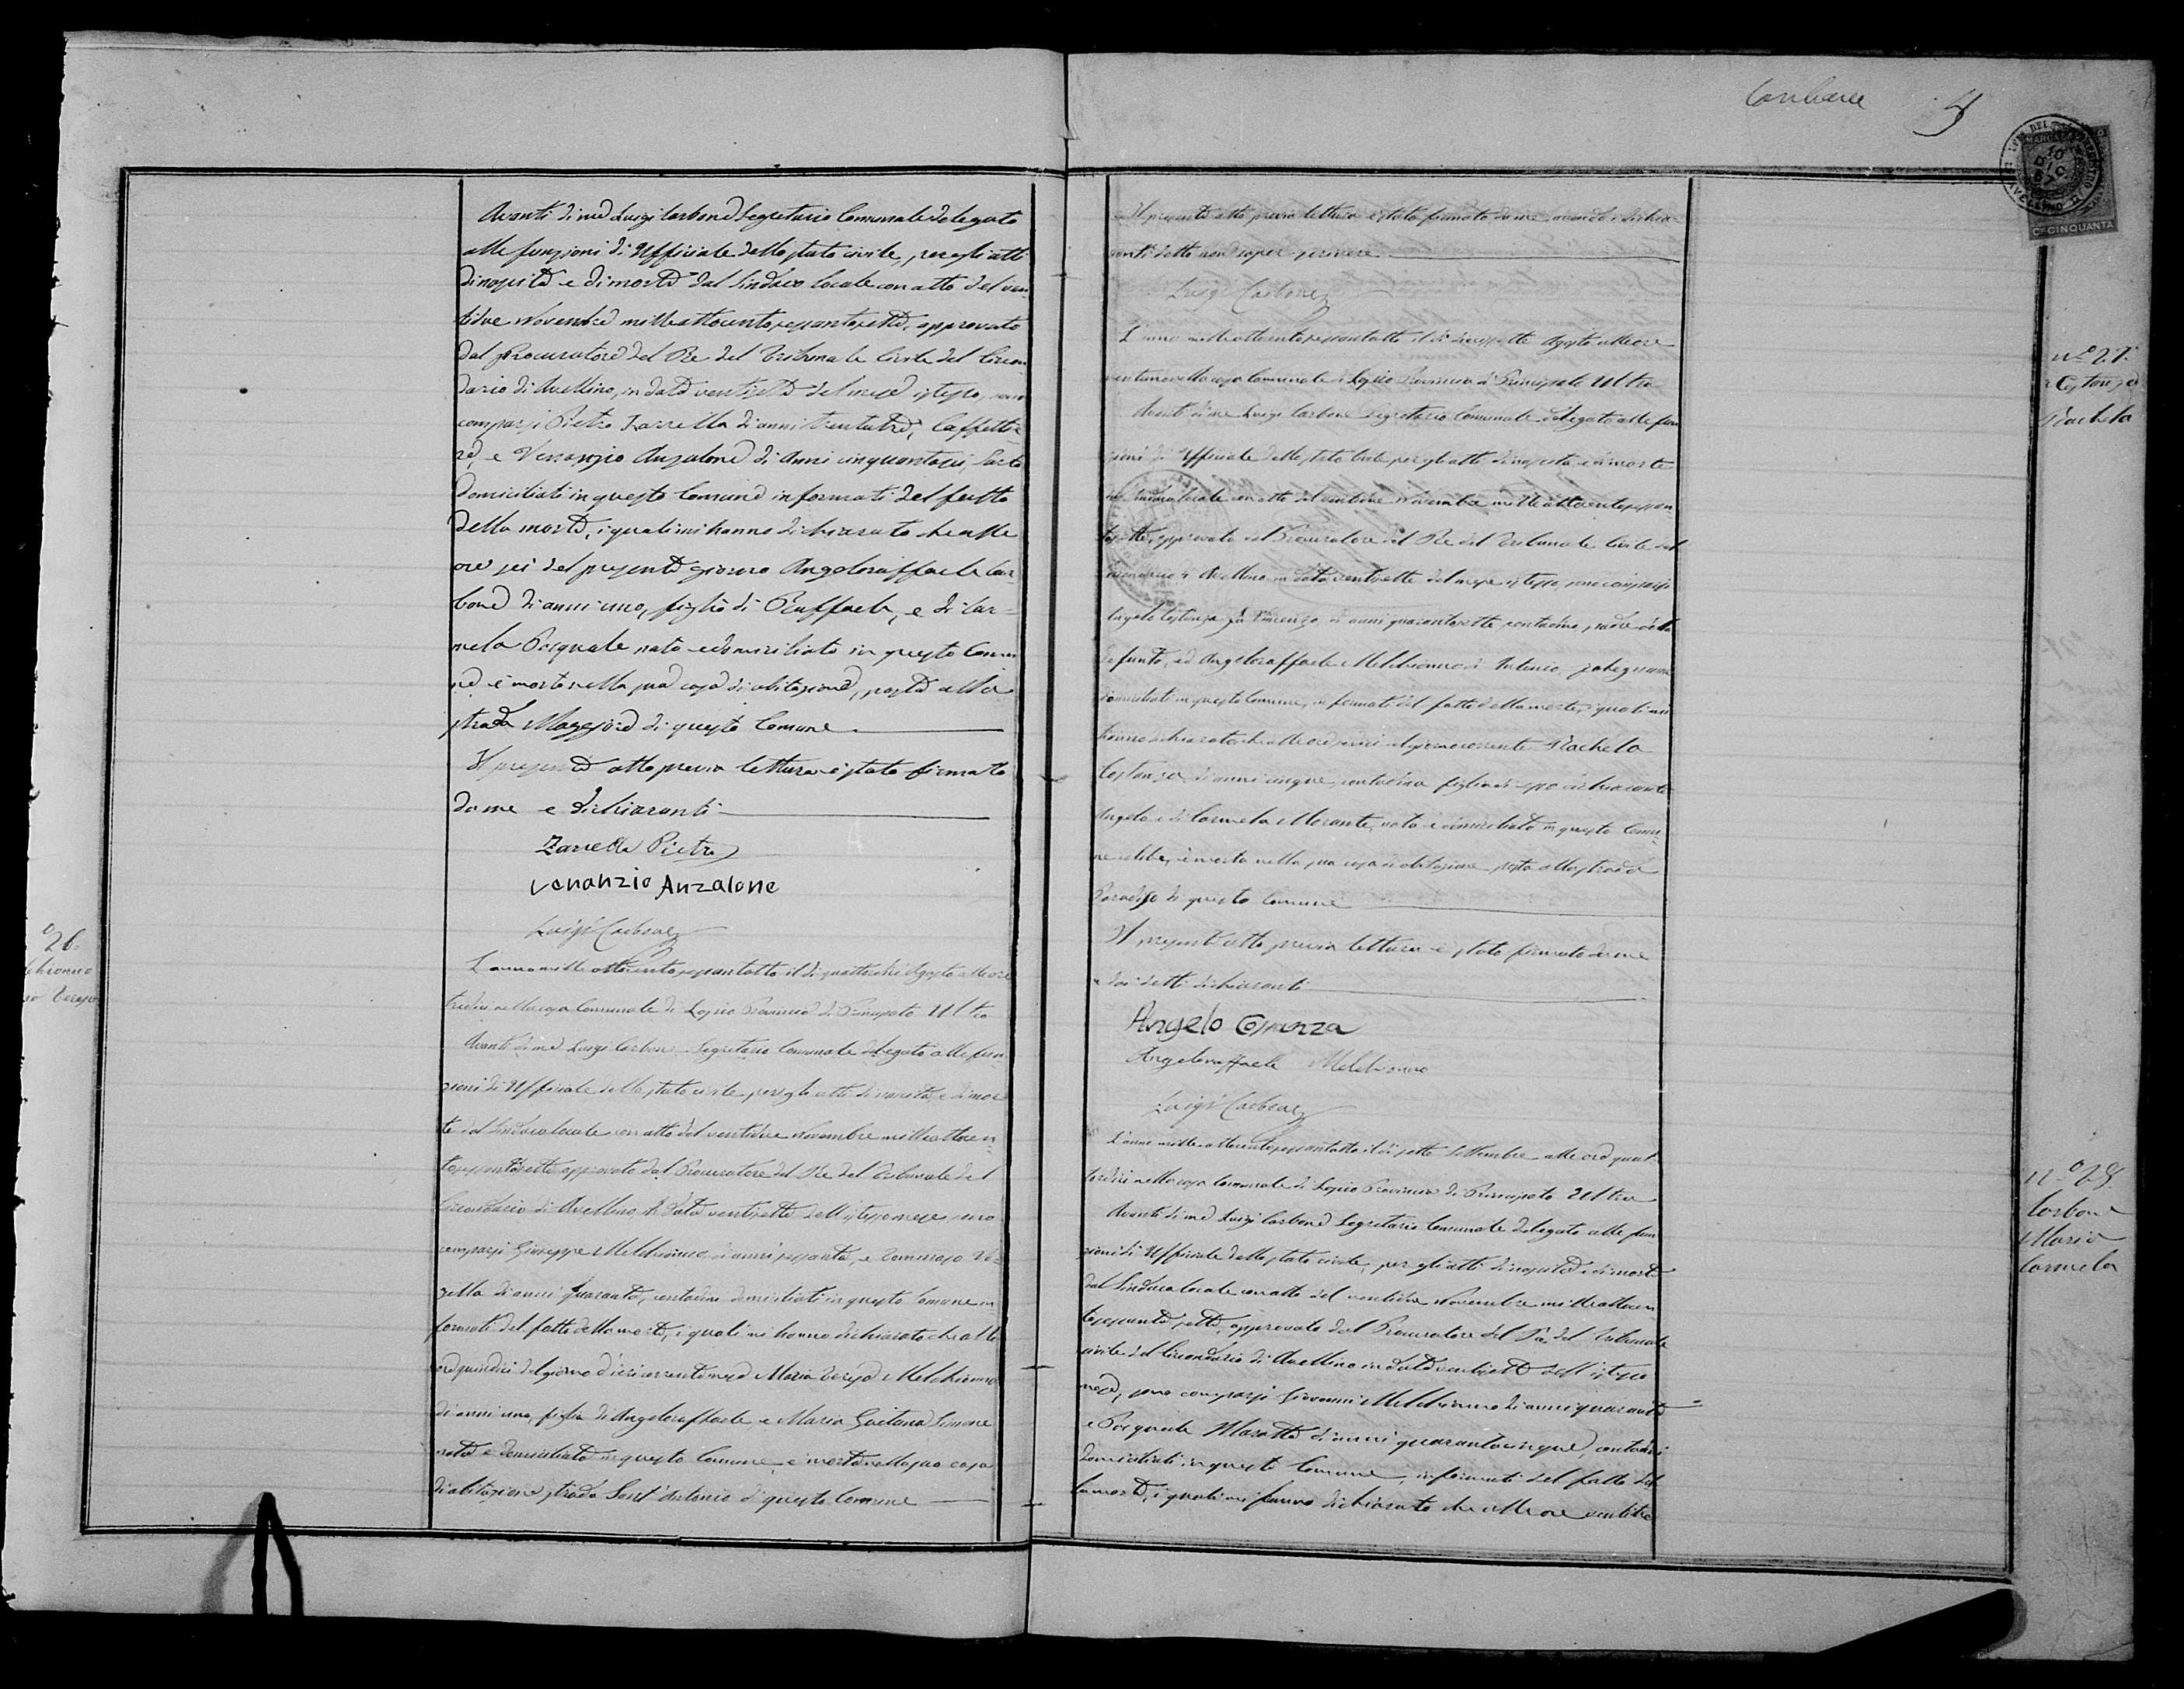 Avanti di me Luigi Carbone Segretario Comunale delegato
alle funzioni di Uffiziale dello stato civile, per gli atti
di nascita e di morte dal Sindaco locale con atto del ven-
tidue Novembre milleottocentosessantasette, approvato
dal Procuratore del Re del Tribunale Civile del Circon
dario di Avellino, in data ventisette del mese istesso, sono
comparsi Pietro Zarrella di anni trentatre, Caffettie
re, e Venanzio Anzalone di Anni cinquantasei, Sarto
domiciliati in questo Comune informati del fatto
della morte, i quali mi hanno dichiarato che alle
ore sei del presente giorno Angeloraffaele Car-
bone di anni uno, figlio di Raffaele, e di Car-
mela Pasquale nato e domiciliato in questo Comu
ne è morto nella sua casa di abitazione, posta alla
strada Maggiore di questo Comune
Il presente atto previa lettura è stato firmato
da me e dichiaranti
Zarrella Pietro
Venanzio Anzalone
Luigi Carbone
26
L'anno milleottocentosessantotto il dì quattordici Agosto alle ore
tredici nella casa Comunale di Lapio Provincia di Principato Ultra
Avanti di me Luigi Carbone Segretario Comunale delegato alle fun-
zioni di Uffiziale dello stato civile per gli atti di nascita, e di mor
te dal Sindaco locale con atto del ventidue Novembre milleottocen-
tosessantasette approvato dal Procuratore del Re del Tribunale del
Circondario di Avellino in data ventisette dell'istesso mese sono
comparsi Giuseppe Melchionno di anni sessanta, e Tommaso
di anni quaranta, contadini domiciliati in questo Comune in
formati del fatto della morte, i quali mi hanno dichiarato che alle
ore quindici del giorno d'ieri corrente mese Maria Teresa Melchionno
di anni uno, figlia di Angeloraffaele, e Maria Gaetana Simone
nata e domiciliata in questo Comune, è morta nella sua casa
di abitazione strada Sant'Antonio di questo Comune
Carbone 5
Il presente atto previa lettura è stato firmato da me avendo i dichia-
ranti detto non saper scrivere
Luigi Carbone
L'anno milleottocentosessantotto il dì diciassette Agosto alle ore
ventuno nella casa Comunale di Lapio Provincia di Principato Ultra
Avanti di me Luigi Carbone Segretario Comunale delegato alle fun
zioni di Uffiziale dello stato Civile per gli atti di nascita, e di morte
Sindaco locale con atto del ventidue Novembre milleottocentosessan-
tasette, approvato dal Procuratore del Re del Tribunale Civile del
Circondario di Avellino in data ventisette del mese istesso, sono comparsi
Angelo Costanza fu Vincenzo di anni quarantasette contadino, padre della
defunta, ed Angeloraffaele Melchionno di Antonio falegname
domiciliati in questo Comune, informati del fatto della morte, i quali mi
hanno dichiarato che alle ore del giorno corrente Rachela
Costanza di anni cinque, contadina figlia di esso dichiarante
Angelo e di Carmela Morante, nata e domiciliata in questo Comu-
ne nubile, è morta nella sua casa di abitazione posta alla strada
Paradiso di questo Comune
Il presente atto previa lettura è stato firmato da me
e dai detti dichiaranti
Angelo Costanza
Angeloraffaele Melchionno
Luigi Carbone
L'anno milleottocentosessantotto il dì sette Settembre alle ore quat-
tordici nella casa Comunale di Lapio Provincia di Principato Ultra
Avanti di me Luigi Carbone Segretario Comunale delegato alle fun
zioni di Uffiziale dello stato civile, per gli atti di nascita e di morte
dal Sindaco locale con atto del ventidue Novembre milleottocen
tosessantasette, approvato dal Procuratore del Re del Tribunale
civile del Circondario di Avellino in data ventisette dell'istesso
mese, sono comparsi Giovanni Melchionno di anni quaranta
e Pasquale Maratta di anni quarantacinque, contadini
domiciliati in questo Comune, informati del fatto del
la morte, i quali mi hanno dichiarato che alle ore ventitre
C. CINQUANTA
N.° 27.
Costanza
Rachela
N.° 28.
Carbone
Maria
Carmela